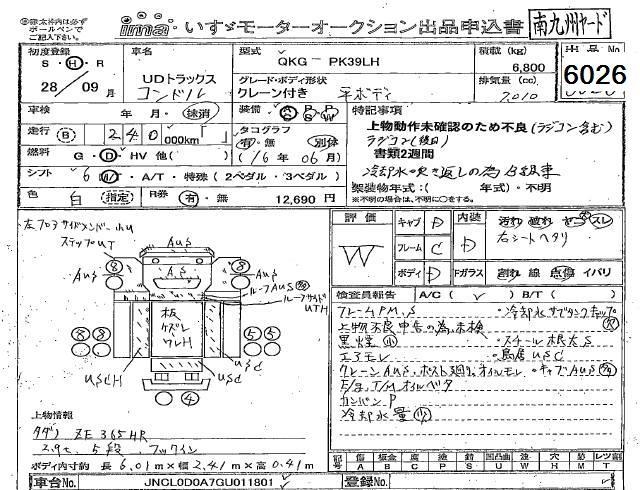 ima いすゞモーターオークション出品申込書
南九州ヤード
㊞鉛太枠内は必ず
ボールペンで
ご記入下さい。
初度登録 車名 型式 積載 (kg) 出品No.
S・H・R UDトラックス QKG－PK39LH 6,800 6026
28／09 コンドル グレード・ボディ形状 排気量 (cc)
クレーン付き 平ボディ 7,010
車検 年・月・抹消 装備 特記事項
走行 240,000km タコグラフ 上物動作未確認のため不良(ラジコン含む)
有・無 別体 ラジコン(後日)
燃料 G・D・HV 他( ) (16年06月) 書類2週間
シフト 6 M・A/T・特殊 (2ペダル・3ペダル) 冷却水吹き返しの為自走事
色 白 指定 R券 有・無 12,690 円 架装物年式:( 年式)・不明
※不明の場合は、不明に○をする。
左フロアサイドメンダーホU
ステップUT
AUS
8 8
A.S
AUS AUS
ルーフAUS
ルーフサイドUTH
板
ケズレ
ワレH
8 8 5 5
USCH USC
USC
4
評価 キャブ D 内装 汚れ 破れ ヤニ スレ
W フレーム C D 右シートヘタリ
ボディ D Fガラス 割れ 線 点傷 イバリ
検査員報告 A/C( ✓ ) B/T( )
フレームPM,S ・冷却水サブタンクキャップ欠
上物不良申告の為未検
黒煙小 ・スチール根太S
エアモレ ・鳥居USC
クレーンAUS,ポスト廻り,オイルモレ ・キャブAUS
E/g,T/Mオイルベタ
カンバンP
冷却水量少
上物情報
タダノ ZE365HR
2.9t、5段、フックイン
ボディ内寸約 長6.01m×幅2.41m×高0.41m
記号 傷 板金 腐 錆 補修 凹 凹凸曲 歪 穴 欠 レッツ
A B C P S U W H M T
車台No. JNCL0D0A7GU011801 登録No.